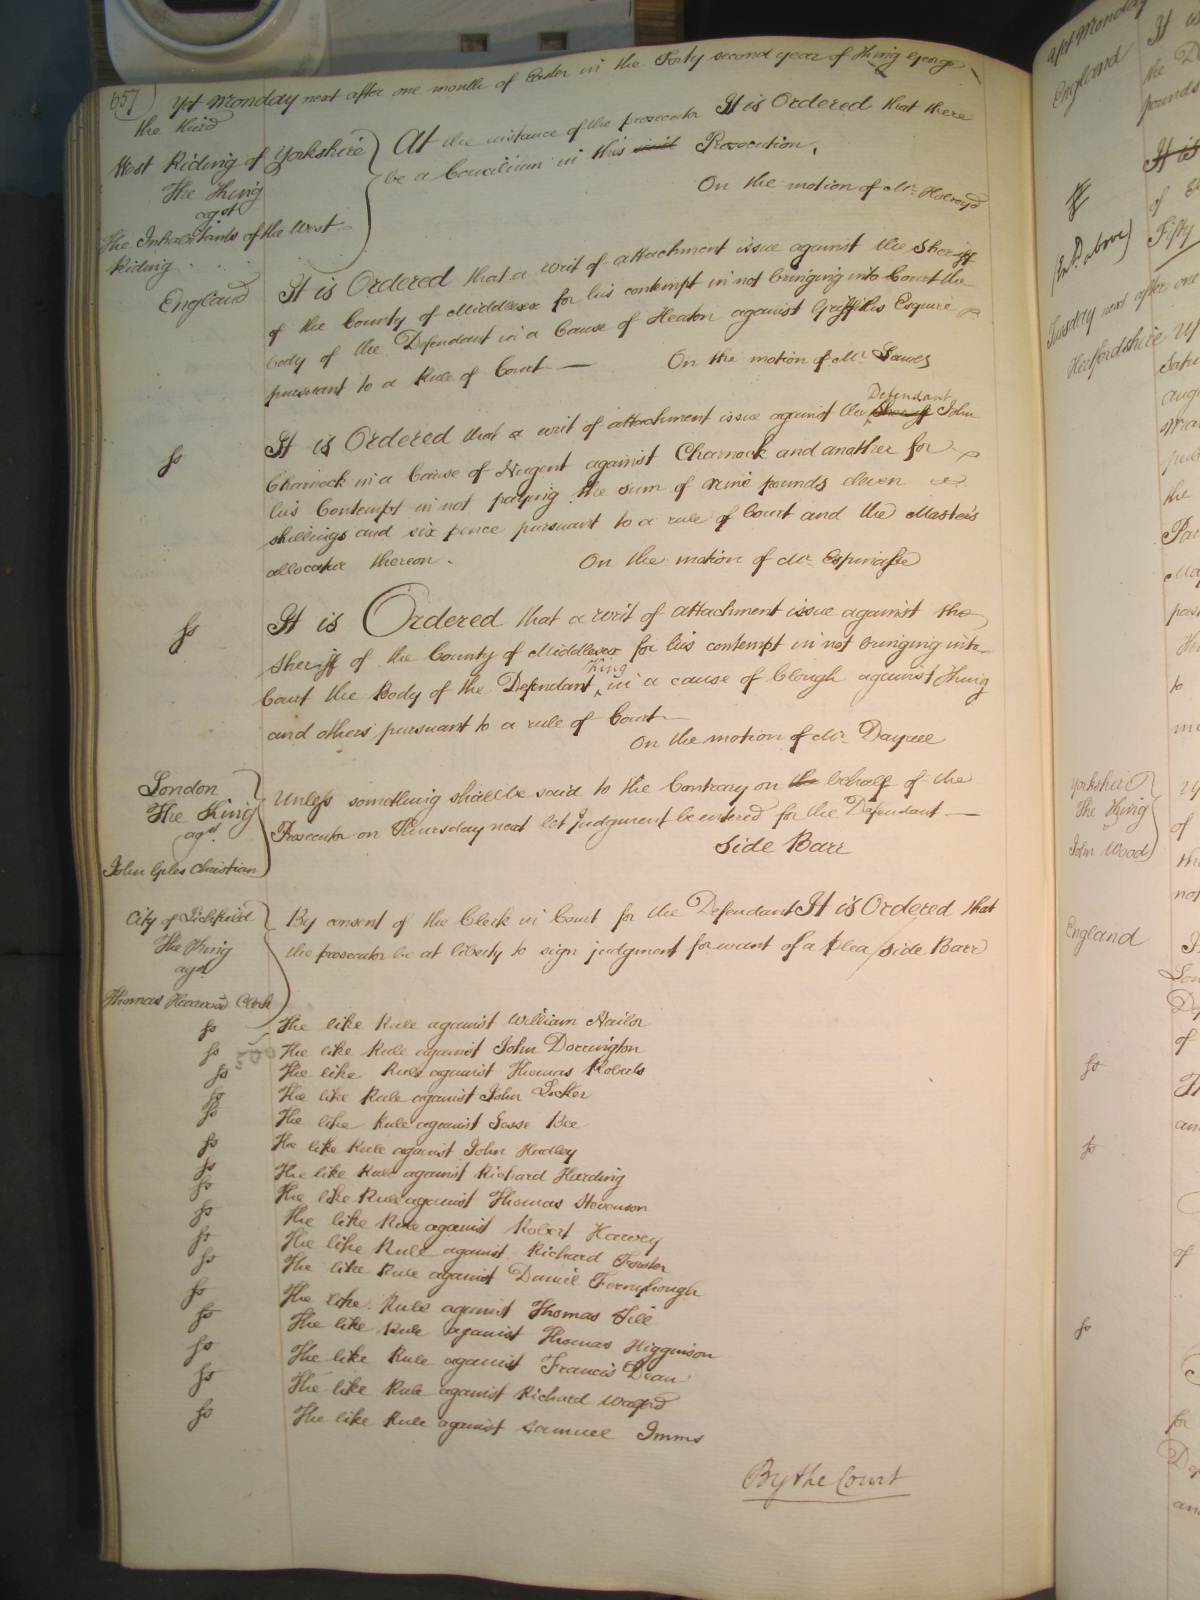 657
Yet Monday next after one month of Easter in the Forty second year of King George
the third
West Riding of Yorkshire
The King
agst
The Inhabitants of the West
Riding
At the instance of the prosecutor It is Ordered that there
be a Concilium in this suit Prosecution.
On the motion of Mr. Holroyd
England
It is Ordered that a writ of attachment issue against the Sheriff
of the County of Middlesex for his contempt in not bringing into Court the
body of the Defendant in a Cause of Heaton against Griffiths Esquire
pursuant to a Rule of Court
On the motion of Mr. Lawes
So
Defendant
It is Ordered that a writ of attachment issue against the Sheriff John
Charnock in a Cause of Nugent against Charnock and another for
his Contempt in not paying the sum of nine pounds eleven
shillings and six pence pursuant to a rule of Court and the Master's
allocatur thereon.
On the motion of Mr. Espinasse
So
It is Ordered that a writ of attachment issue against the
Sheriff of the County of Middlesex for his contempt in not bringing into
King
Court the Body of the Defendant in a cause of Clough against King
and others pursuant to a rule of Court
On the motion of Mr. Dayrell
London
The King
agst
John Giles Christian
Unless something shall be said to the Contrary on the behalf of the
Prosecutor on Thursday next let Judgment be entered for the Defendant
Side Barr
City of Lichfield
The King
agst
Thomas Harwood Clerk
By consent of the Clerk in Court for the Defendant It is Ordered that
the prosecutor be at liberty to sign judgment for want of a plea / Side Barr
So The like Rule against William Nailor
So The like Rule against John Dorrington
So The like Rule against Thomas Roberts
So The like Rule against John Locker
So The like Rule against Jesse Bee
So The like Rule against John Hadley
So The like Rule against Richard Harding
So The like Rule against Thomas Stevenson
So The like Rule against Robert Harvey
So The like Rule against Richard Forster
So The like Rule against Daniel Fernyhough
So The like Rule against Thomas Till
So The like Rule against Thomas Higginson
So The like Rule against Francis Dean
So The like Rule against Richard
So The like Rule against Samuel Imms
By the Court
Yet Monday
England
(Entd. above)
Fifty
Tuesday next after one
Hertfordshire
Yorkshire
The King
John Wood
England
So
So
So